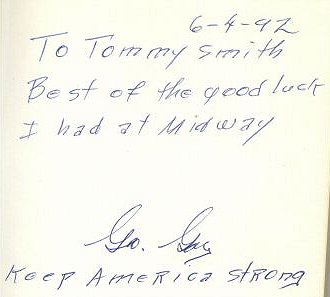 6-4-92
To Tommy Smith
Best of the good luck
I had at Midway
Geo. Gay
Keep America strong